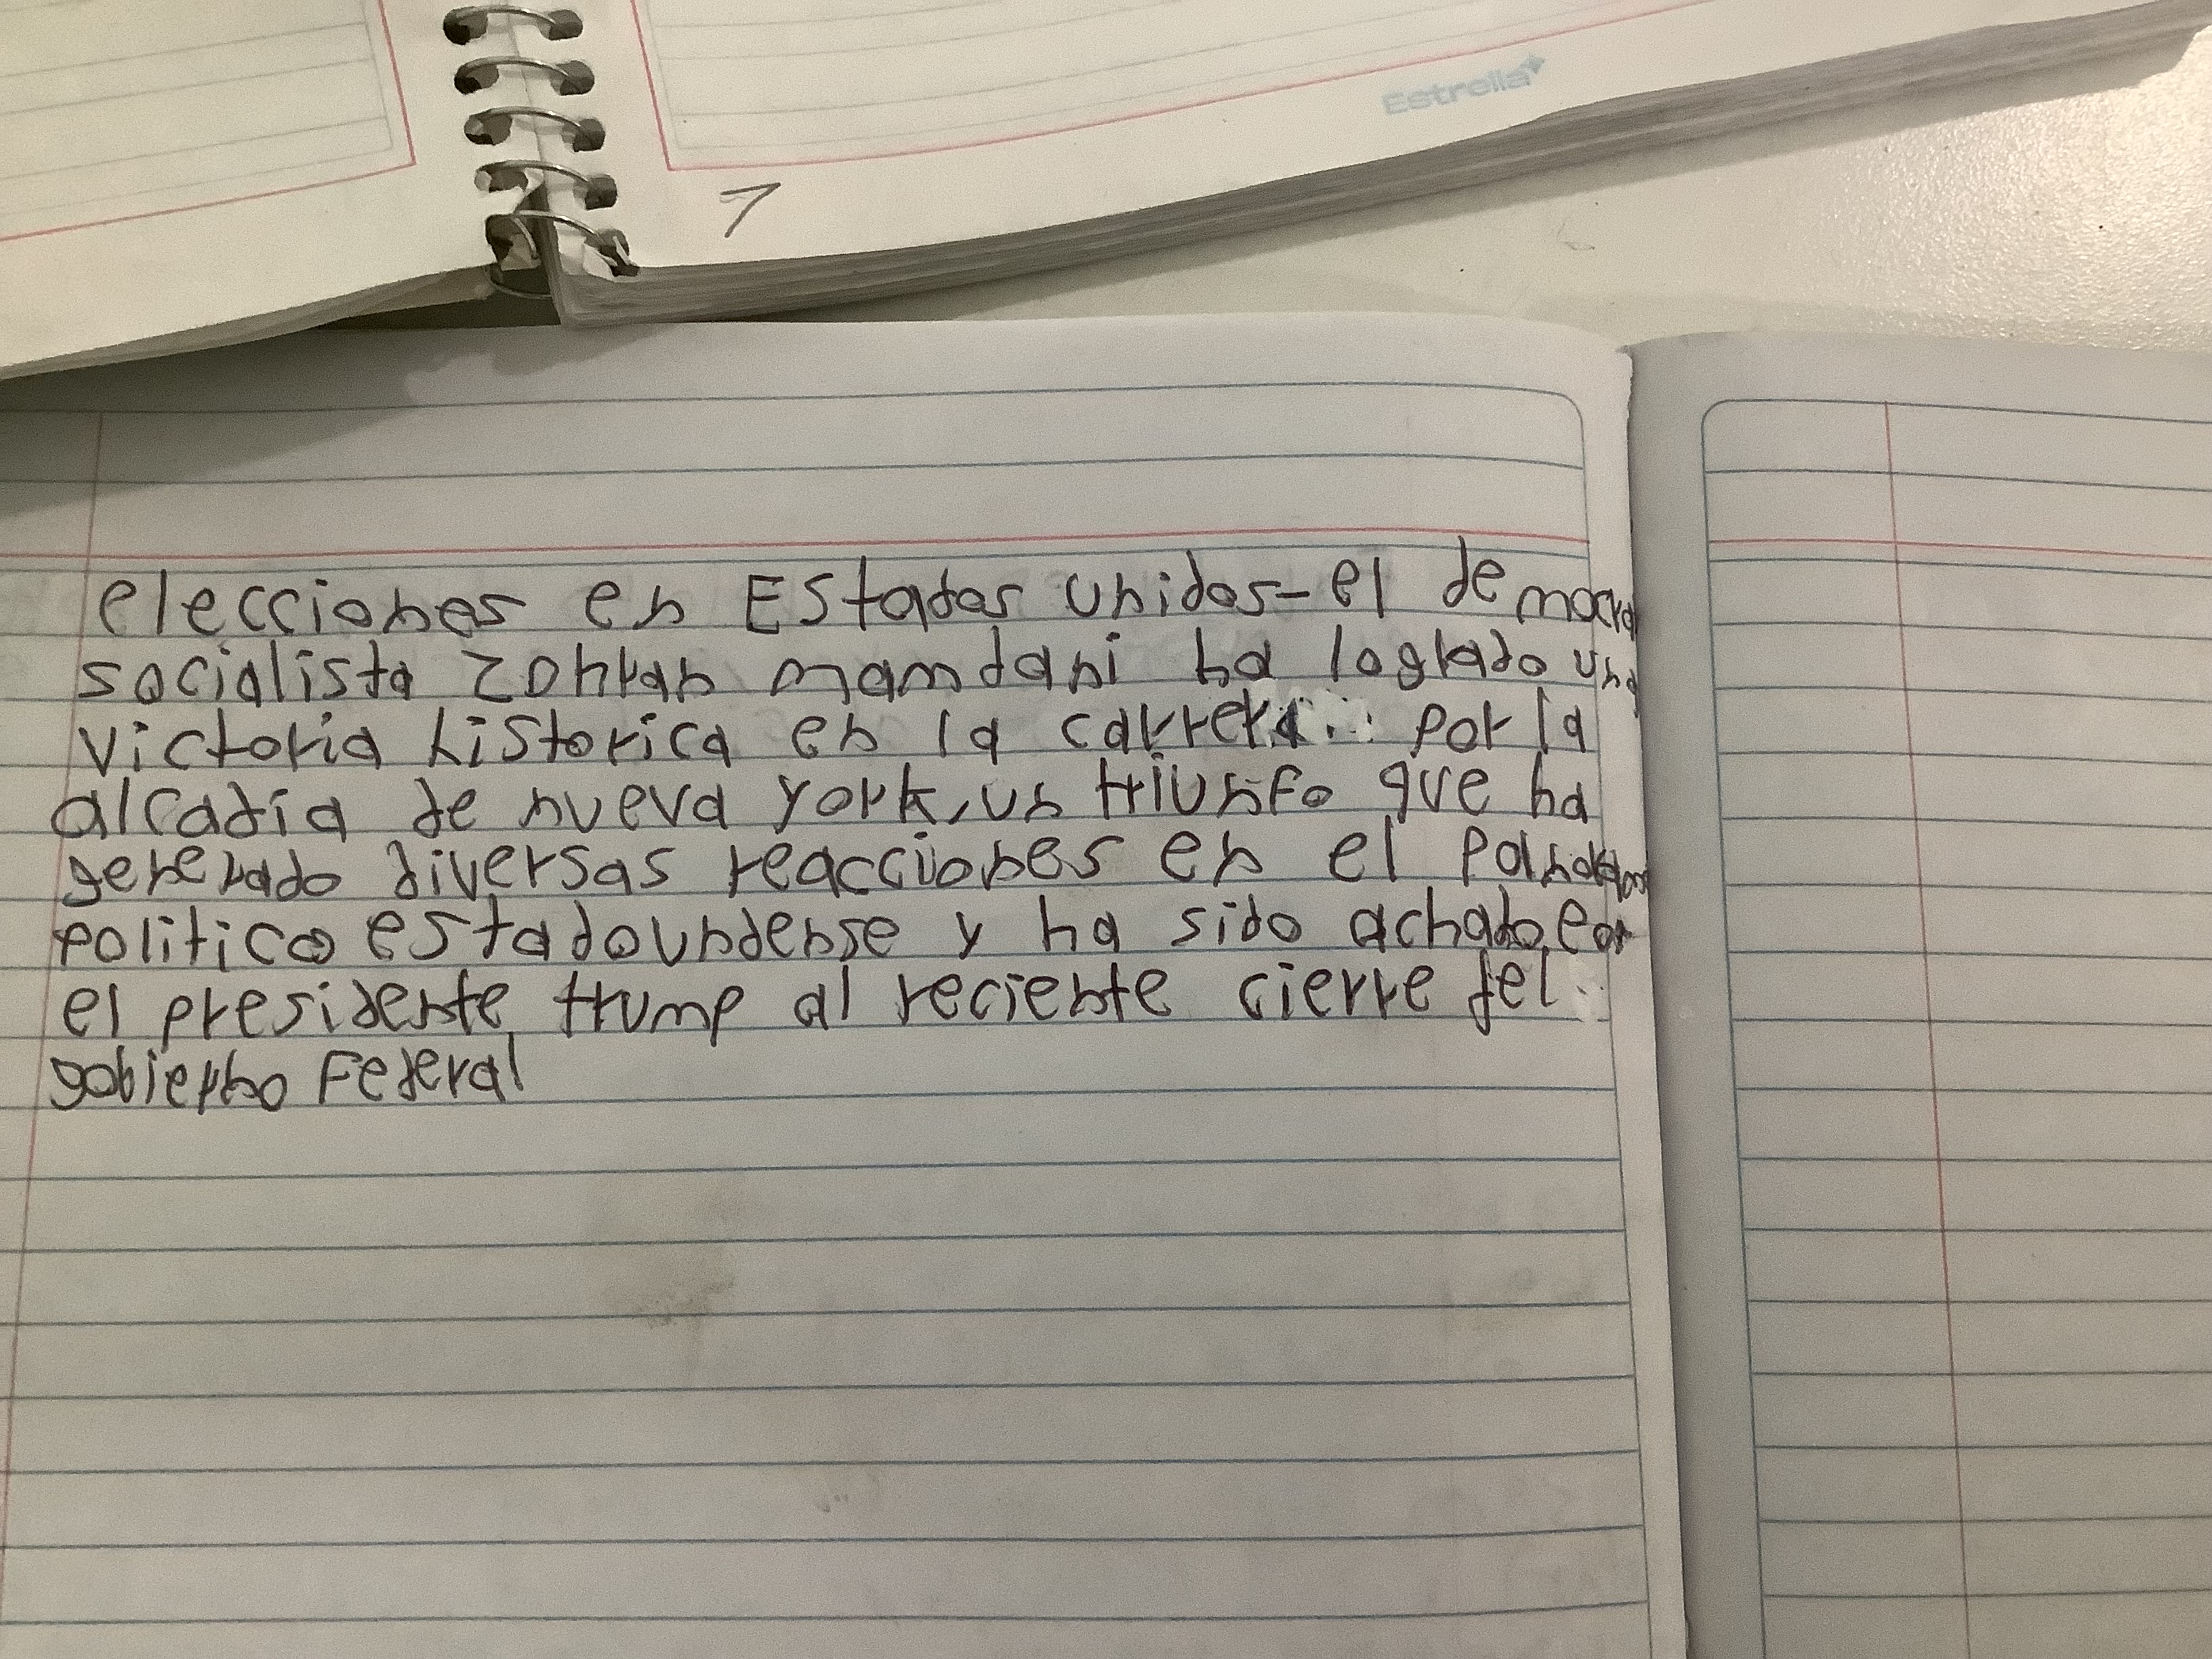 Estrella
7
elecciones en Estados Unidos- el democra
socialista Zohran mamdani ha logrado una
victoria historica en la carrera por la
alcadía de nueva york, un triunfo que ha
generado diversas reacciones en el
politico estadoundense y ha sido achado por
el presidente trump al reciente cierre del
gobierno Federal